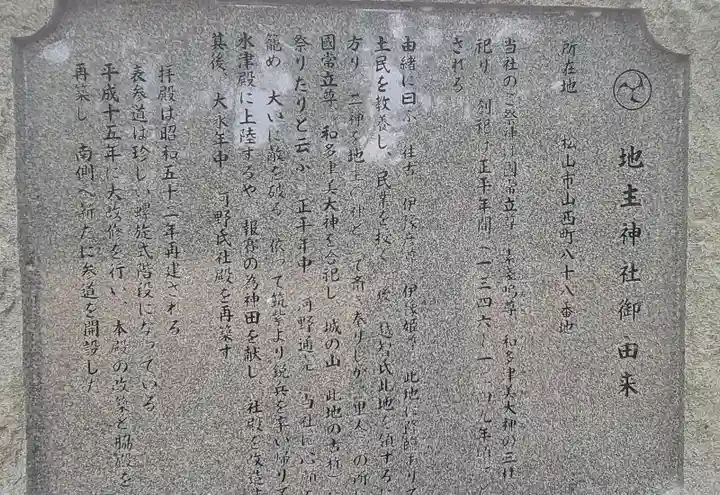 地主神社御由来
所在地 松山市山西町八十八番地
当社のご祭神は国常立尊 素戔嗚尊 和多津美大神の三柱
祀り 創祀は正平年間(一三四六~一 九年頃)
される
由緒に曰ふ 往古 伊豫 尊 伊豫姫 此地に降跡ありて
土民を教養し、民業を授く 後 越智氏此地を領する
方り 二神を地主の神と て斎き奉りしが 里人 の
國常立尊 和多津美大神を合祀し 城の山 此地の古
祭りたりと云ふ 正平年中 河野通 当社に心願
籠め 大いに敵を破る 依って筑紫より鋭兵を率い帰りて
氷津殿に上陸するや 報賽の為神田を献し 社殿を改造す
其後 大永年中 河野氏社殿を再築す
拝殿は昭和五十二年再建される
表参道は珍しい螺旋式階段になっている
平成十五年に大改修を行い 本殿の改築と脇殿を
再築し 南側へ新たに参道を開設した